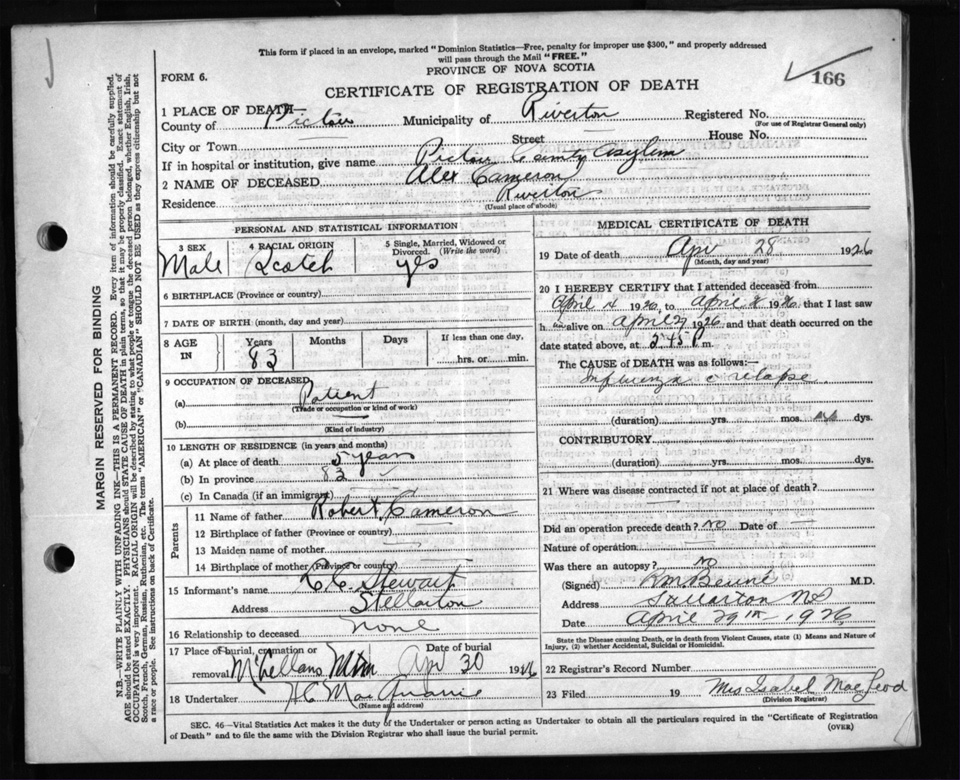 This form if placed in an envelope, marked "Dominion Statistics—Free, penalty for improper use $300," and properly addressed
will pass through the Mail "FREE."
FORM 6.
PROVINCE OF NOVA SCOTIA
166
CERTIFICATE OF REGISTRATION OF DEATH
1 PLACE OF DEATH
County of Pictou Municipality of Riverton Registered No.
(For use of Registrar General only)
City or Town Street House No.
If in hospital or institution, give name Pictou County Asylum
2 NAME OF DECEASED Alex Cameron
Residence Riverton
(Usual place of abode)
MARGIN RESERVED FOR BINDING
N.B.—WRITE PLAINLY WITH UNFADING INK—THIS IS A PERMANENT RECORD. Every item of information should be carefully supplied.
AGE should be stated EXACTLY. PHYSICIANS should STATE CAUSE OF DEATH in plain terms, so that it may be properly classified. Exact statement of
OCCUPATION is very important. RACIAL ORIGIN will be described by stating to what people or tongue the deceased person belonged, whether English, Irish,
Scotch, French, German, Russian, Ruthenian, etc. The terms "AMERICAN" or "CANADIAN" SHOULD NOT BE USED as they express citizenship but not
a race or people. See instructions on back of Certificate.
PERSONAL AND STATISTICAL INFORMATION
3 SEX
Male
4 RACIAL ORIGIN
Scotch
5 Single, Married, Widowed or
Divorced. (Write the word)
yes
6 BIRTHPLACE (Province or country)
7 DATE OF BIRTH (month, day and year)
8 AGE
IN
Years Months Days If less than one day,
83 hrs. or min.
9 OCCUPATION OF DECEASED
(a) Patient
(Trade or occupation or kind of work)
(b)
(Kind of industry)
10 LENGTH OF RESIDENCE (in years and months)
(a) At place of death 5 years
(b) In province 83
(c) In Canada (if an immigrant)
Parents
11 Name of father Robert Cameron
12 Birthplace of father (Province or country)
13 Maiden name of mother
14 Birthplace of mother (Province or country)
15 Informant's name Stewart
Address Stellarton
16 Relationship to deceased none
17 Place of burial, cremation or Date of burial
removal McLellans Mtn Apr 30 1926
18 Undertaker H C MacQuarrie
(Name and address)
MEDICAL CERTIFICATE OF DEATH
19 Date of death Apr 28 1926
(Month, day and year)
20 I HEREBY CERTIFY that I attended deceased from
April 1926 to April 1926 that I last saw
h im alive on April 27 1926, and that death occurred on
date stated above, at 2.45 P m.
The CAUSE of DEATH was as follows:
Influenza c relapse
(duration) yrs. mos. dys.
CONTRIBUTORY
(duration) yrs. mos. dys.
21 Where was disease contracted if not at place of death?
Did an operation precede death? NO Date of
Nature of operation
Was there an autopsy? NO
(Signed) M.D.
Address Stellarton NS
Date April 29th 1926
State the Disease causing Death, or in death from Violent Causes, state (1) Means and Nature of
Injury, (2) whether Accidental, Suicidal or Homicidal.
22 Registrar's Record Number
23 Filed 19 Mrs Isabel MacLeod
(Division Registrar)
SEC. 46—Vital Statistics Act makes it the duty of the Undertaker or person acting as Undertaker to obtain all the particulars required in the "Certificate of Registration
of Death" and to file the same with the Division Registrar who shall issue the burial permit.
(OVER)